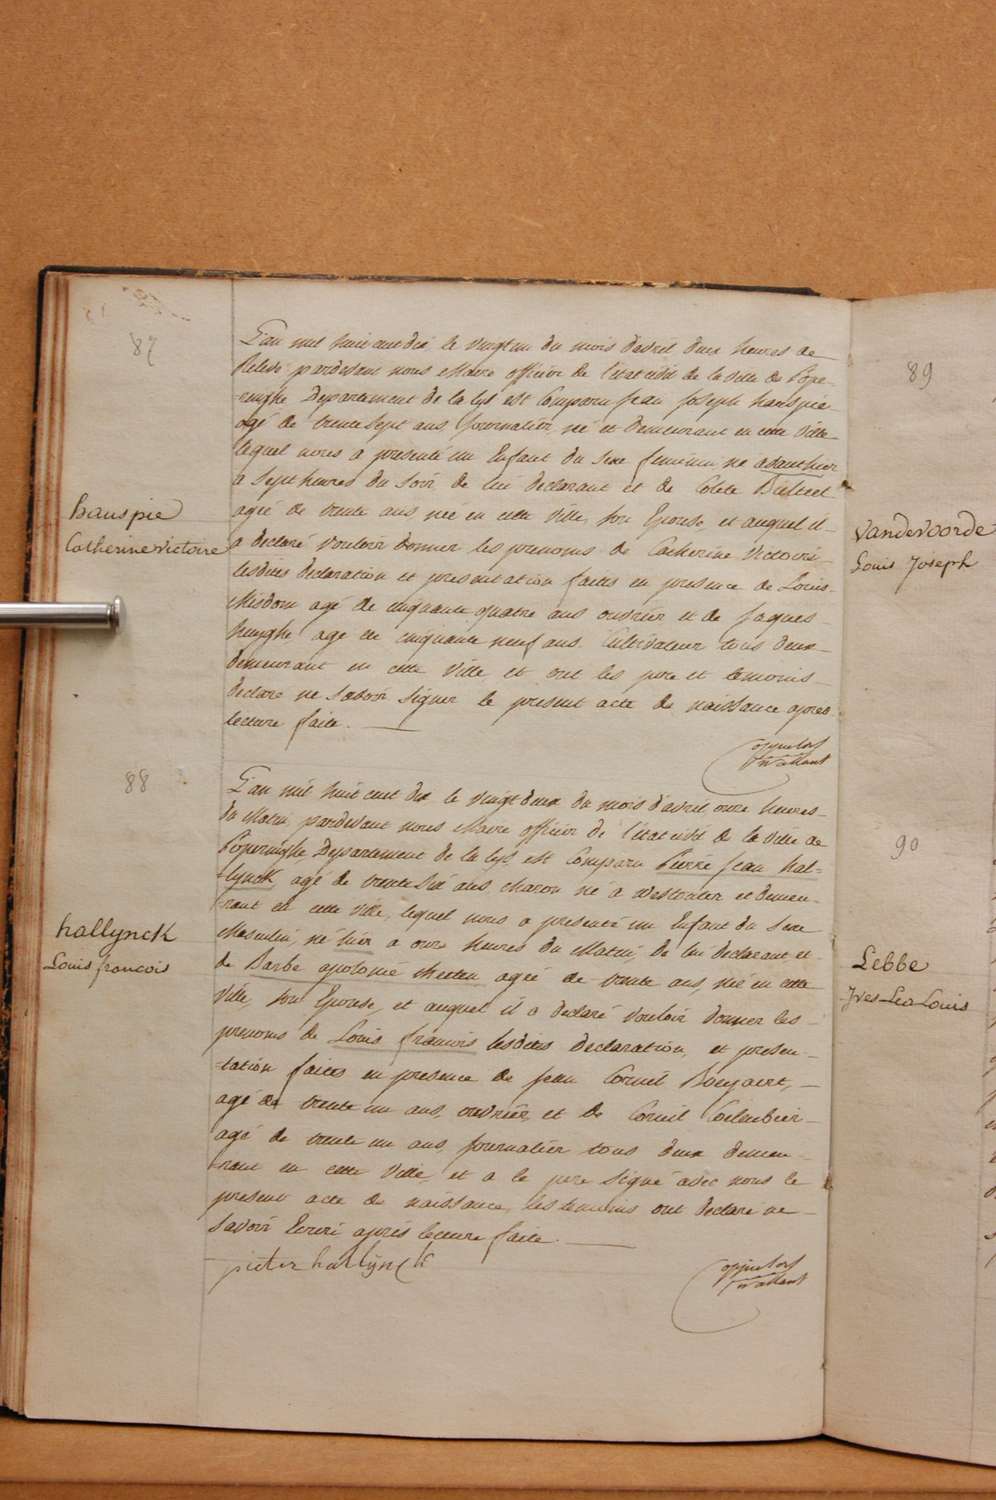 87
hauspie
Catherine Victoire
L'an mil huit cent dix le vingt un du mois d'avril deux heures de
relevé pardevant nous Maire officier de l'état civil de la ville de Pope-
-ringhe Departement de la Lys est Comparu Jean Joseph hauspie
agé de trente sept ans journalier né et demeurant en cette ville
lequel nous a presenté un Enfant du sexe feminin né avant hier
a sept heures du soir de lui declarant et de Colete
agée de trente ans née en cette ville, son Epouse, et auquel il
a declaré vouloir donner les prenoms de Catherine Victoire
lesdites declaration et presentation faites en presence de Louis
Misdom agé de cinquante quatre ans ouvrier et de Jaques
agé de cinquante neuf ans Cultivateur tous deux
demeurant en cette Ville et ont les pere et temoins
declaré ne savoir signer le present acte de naissance apres
lecture faite.
88
hallynck
Louis francois
L'an mil huit cent dix le vingt deux du mois d'avril onze heures
du Matin pardevant nous Maire officier de l'état civil de la ville de
Poperinghe Departement de la Lys, est Comparu Pierre Jean hal=
=lynck agé de trente six ans charon né a westvleter et demeu-
-rant en cette ville, lequel nous a presenté un Enfant du sexe
Masculin, né hier a onze heures du Matin, de lui declarant et
de Barbe apolonie agée de trente ans, née en cette
ville son Epouse, et auquel il a declaré vouloir donner les
prenoms de Louis francois lesdites declaration, et presen-
-tation faites en presence de Jean Corneil
agé de trente un ans, ouvrier, et de Corneil
agé de trente un ans journalier tous deux demeu-
-rant en cette Ville, et a le pere signé avec nous le
present acte de naissance, les temoins ont declaré ne
savoir Ecrire après lecture faite.
pieter hallynck
89
vandevoorde
Louis Joseph
90
Lebbe
Yves Leo Louis